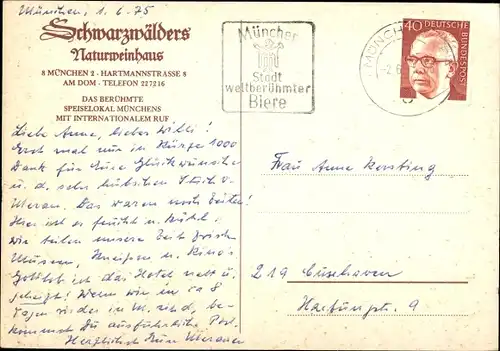 München, 1.6.75
Schwarzwälders
Naturweinhaus
8 MÜNCHEN 2 · HARTMANNSTRASSE 8
AM DOM · TELEFON 227216
DAS BERÜHMTE
SPEISELOKAL MÜNCHENS
MIT INTERNATIONALEM RUF
München
Stadt
weltberühmter
Biere
MÜNCH
-2.6
40 DEUTSCHE
BUNDESPOST
Liebe Anne, lieber Willi!
Doch mal nur in Kürze 1000
Dank für Eure Glückwünsche
u. d. sehr hübschen Stich v.
Meran. Das waren noch Zeiten!
Hier ist es feucht u. kühl,
wir teilen unsere Zeit zwisch.
Museen, Kneipen u. Kino's
Gottlob ist das Hotel nett u.
geheizt! Wenn wir in ca 8
Tagen wieder in M. sind, be-
kommst Du ausführliche Post.
Herzlichst Eure
Frau Anne Kersting
219 Cuxhaven
9